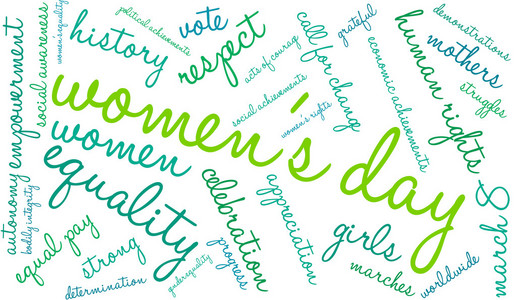 political achievements
vote
grateful
demonstrations
women'sequality
history
respect
acts of courag
call for change
mothers
social awareness
economic achievements
human rights
struggles
empowerment
women's day
social achievements
women's rights
women
equality
autonomy
bodily integrity
celebration
appreciation
march 8
equal pay
strong
girls
progress
genderequality
determination
marches
worldwide